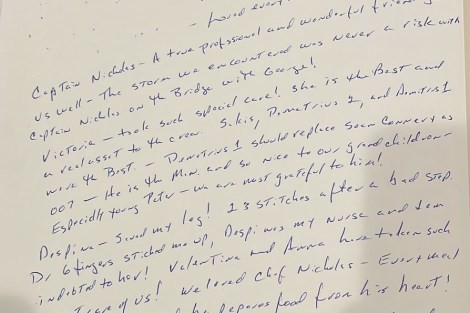 - Loved ever
Captain Nicholas - A true professional and wonderful friend
us well - The storm we encountered was never a risk with
Captain Nicholas on the Bridge with George!
Victoria - took such special care! She is the Best and
a real asset to the crew. Sakis, Demetrius 2, and Demitrius 1
were the Best. - Demetrius 1 should replace Sean Connery as
007 - He is the Man, and so nice to our grandchildren -
Especially young Peter - we are most grateful to him!
Despina - Saved my leg! 13 stitches after a bad step.
Dr 6 fingers stiched me up, Despina was my nurse and I am
indebted to her! Valentina and Anna have taken such
care of us! We loved Chef Nicholas - Every meal
he prepares food from his heart!